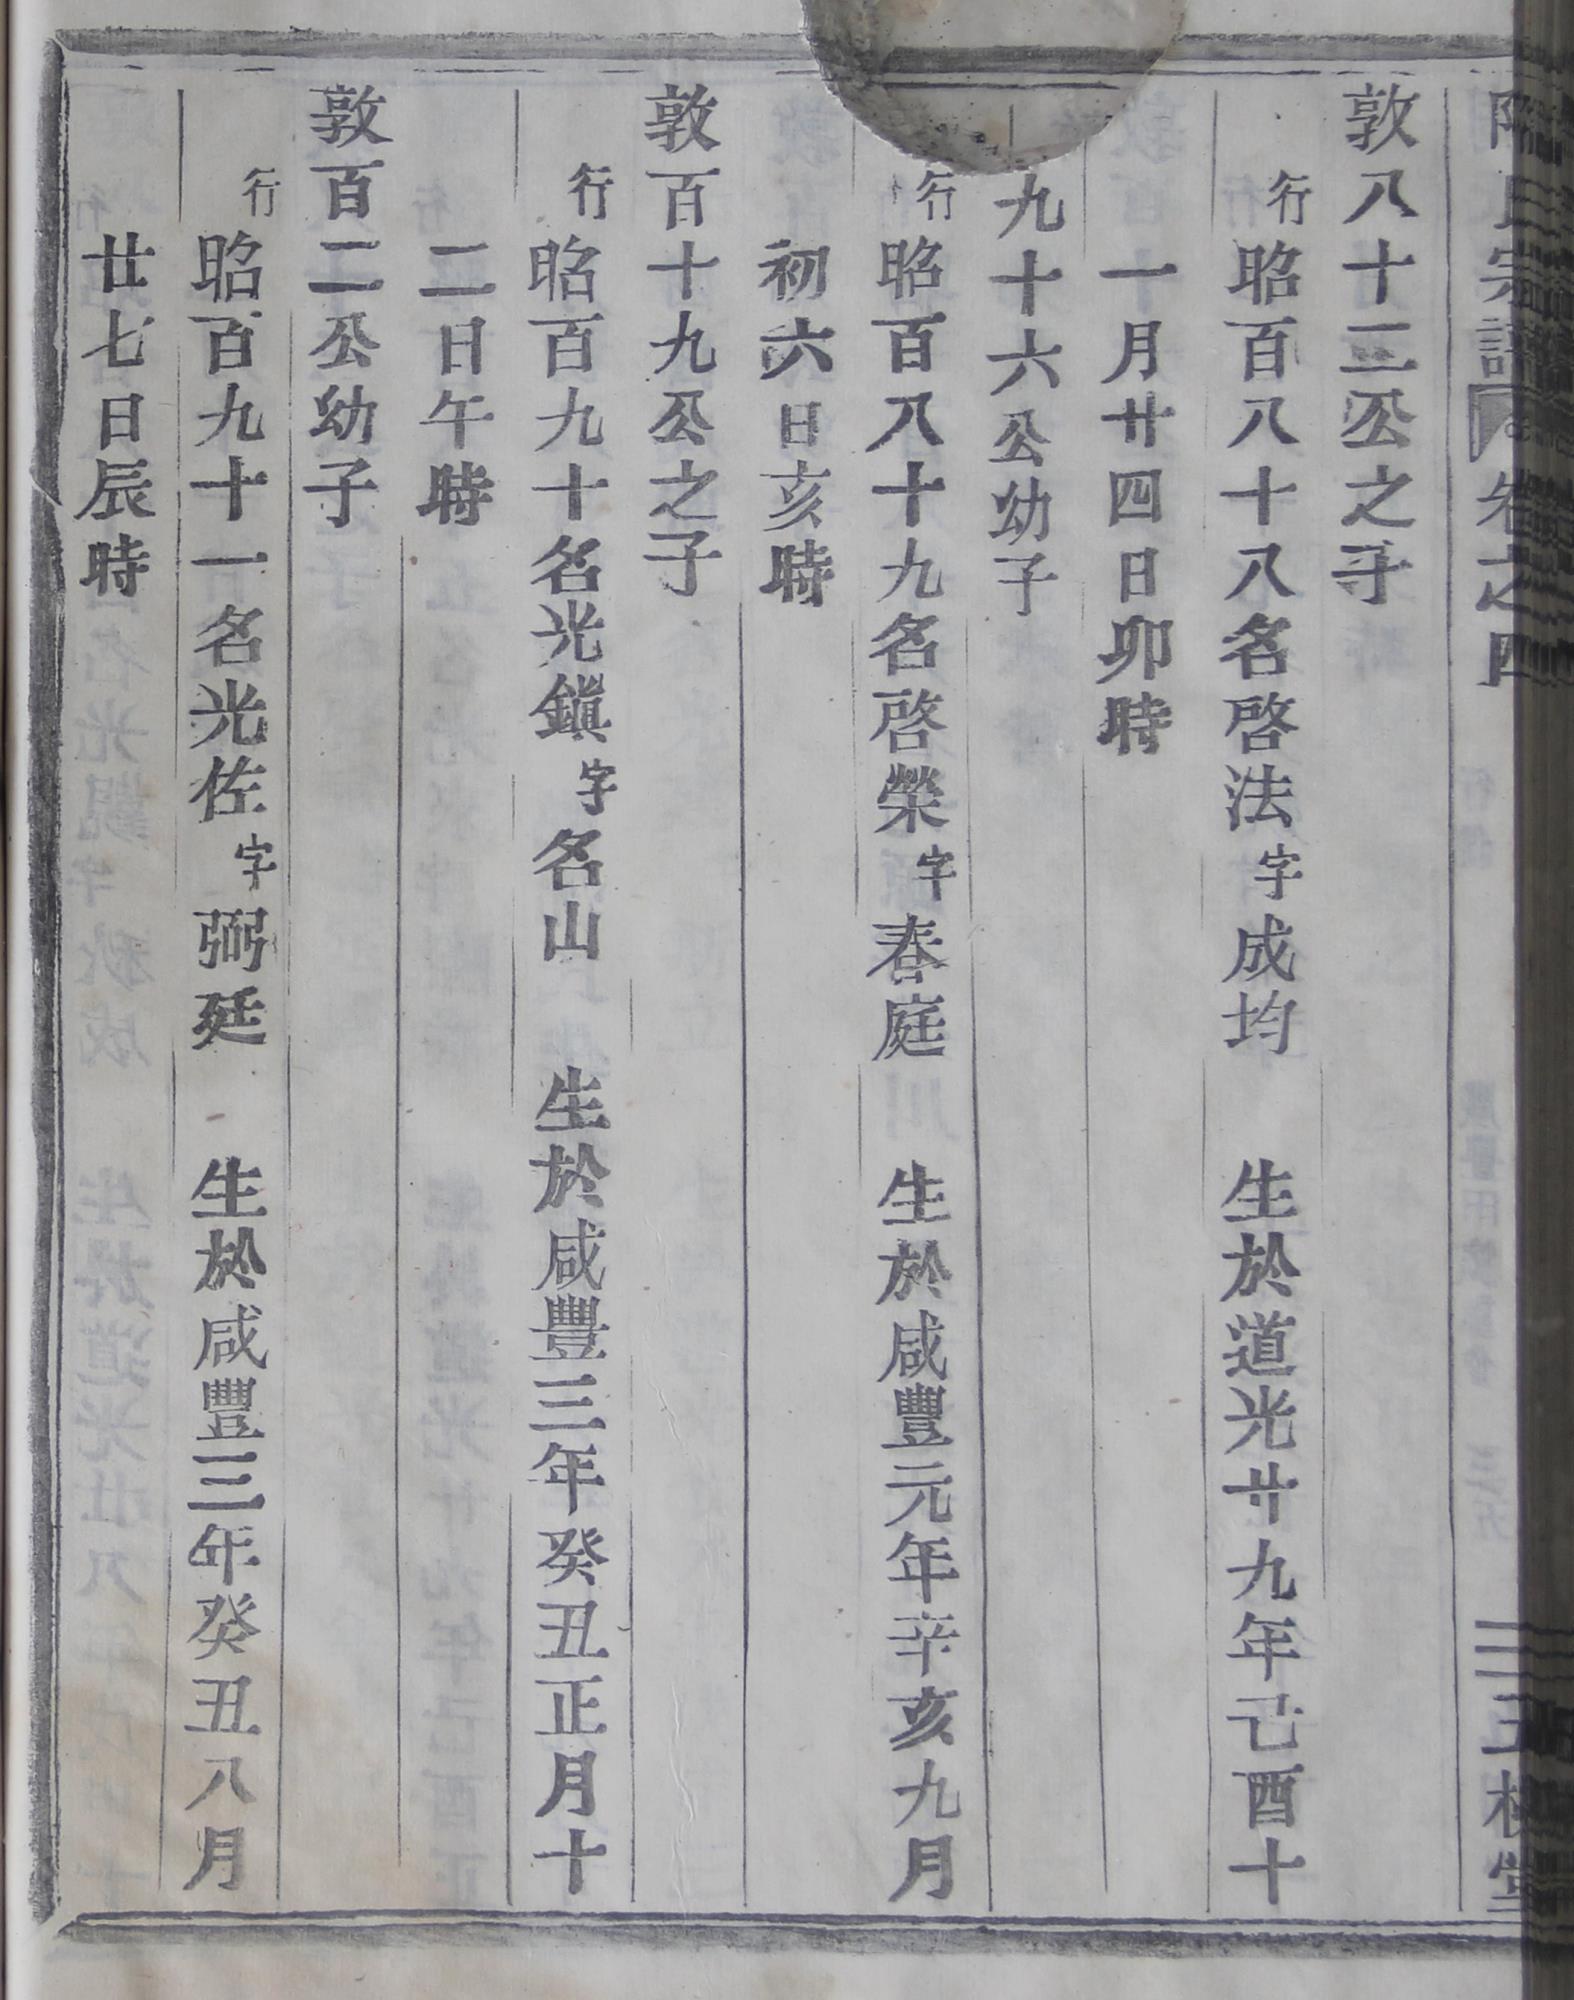 氏宗譜 卷之四 三
敦八十三公之子
行昭百八十八名啓法字成均 生於道光廿九年己酉十
一月廿四日卯時
九十六公幼子
行昭百八十九名啓榮字春庭 生於咸豐元年辛亥九月
初六日亥時
敦百十九公之子
行昭百九十名光鎭字名山 生於咸豐三年癸丑正月十
二日午時
敦百二公幼子
行昭百九十一名光佐字弼廷 生於咸豐三年癸丑八月
廿七日辰時